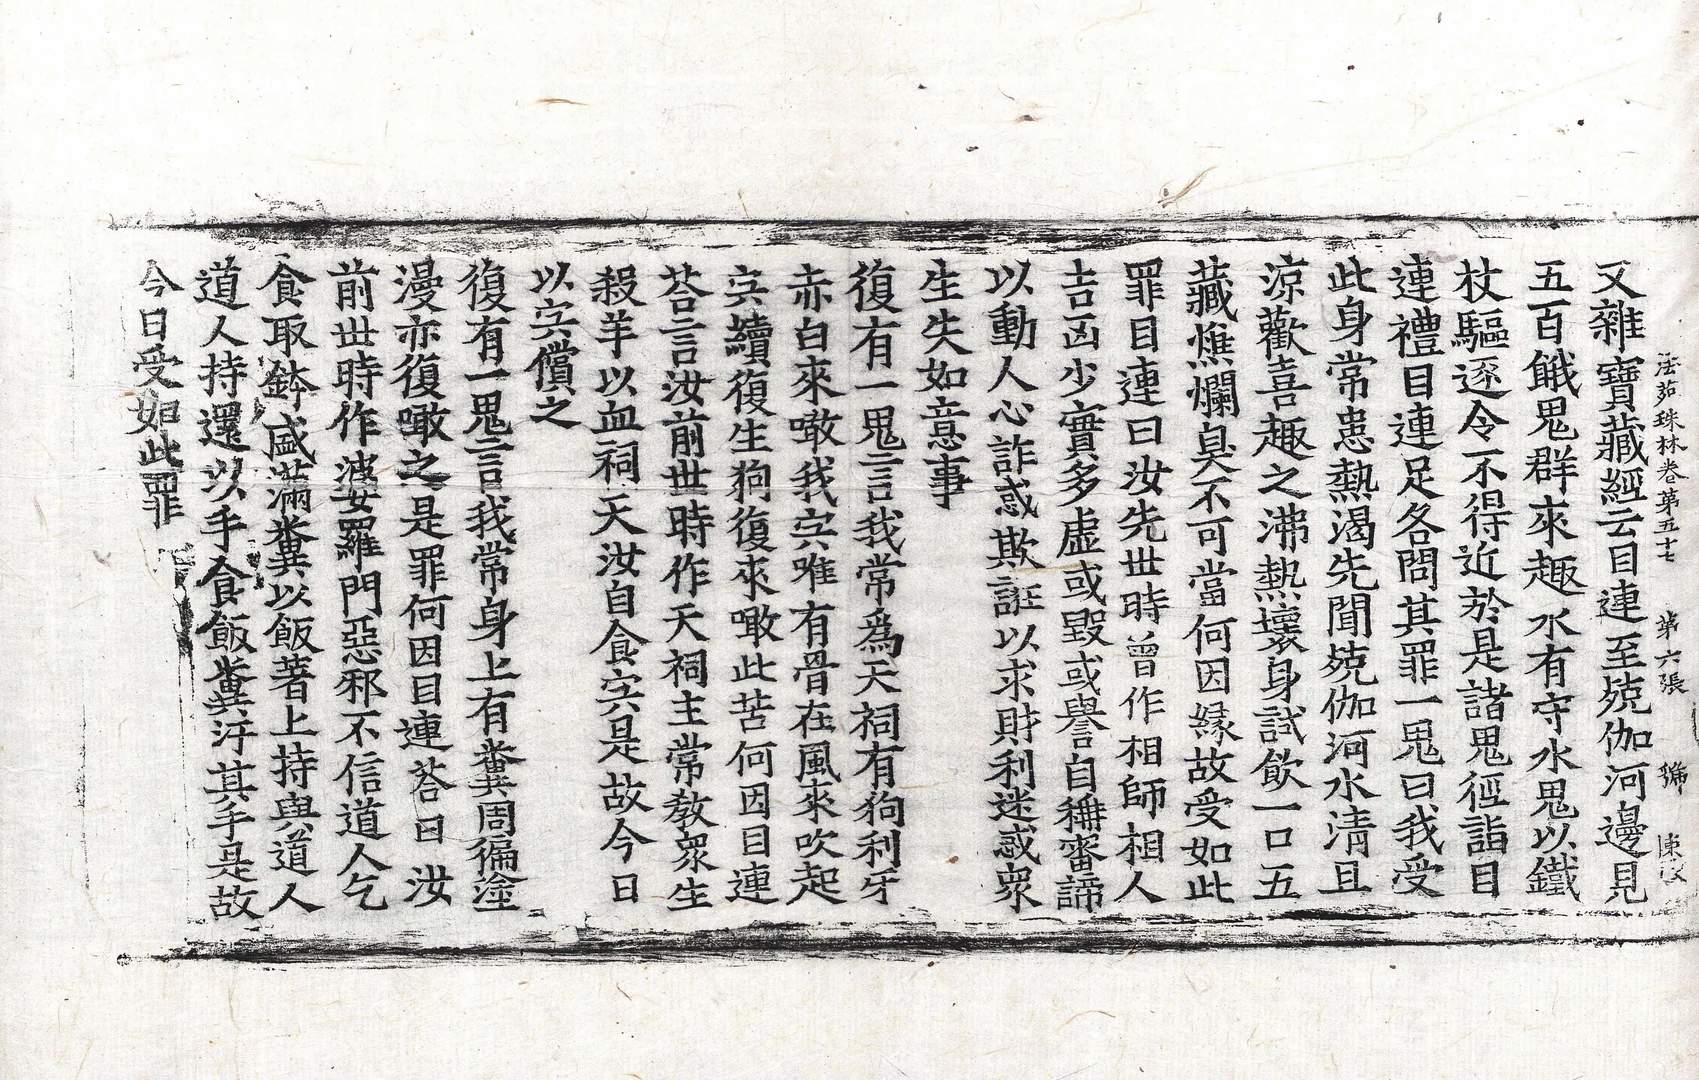 法苑珠林卷第五十七 第六張 號
又雜寶藏經云目連至殑伽河邊見
五百餓鬼群來趣水有守水鬼以鐵
杖驅逐令不得近於是諸鬼徑詣目
連禮目連足各問其罪一鬼曰我受
此身常患熱渴先聞殑伽河水清且
涼歡喜趣之沸熱壞身試飲一口五
藏燋爛臭不可當何因緣故受如此
罪目連曰汝先世時曾作相師相人
吉凶少實多虛或毀或譽自稱審諦
以動人心詐惑欺誑以求財利迷惑衆
生失如意事
復有一鬼言我常爲天祠有狗利牙
赤白來噉我肉唯有骨在風來吹起
肉續復生狗復來噉此苦何因目連
荅言汝前世時作天祠主常教衆生
殺羊以血祠天汝自食肉是故今日
以肉償之
復有一鬼言我常身上有糞周徧塗
漫亦復噉之是罪何因目連荅曰汝
前世時作婆羅門惡邪不信道人乞
食取鉢盛滿糞以飯著上持與道人
道人持還以手食飯糞汙其手是故
今日受如此罪